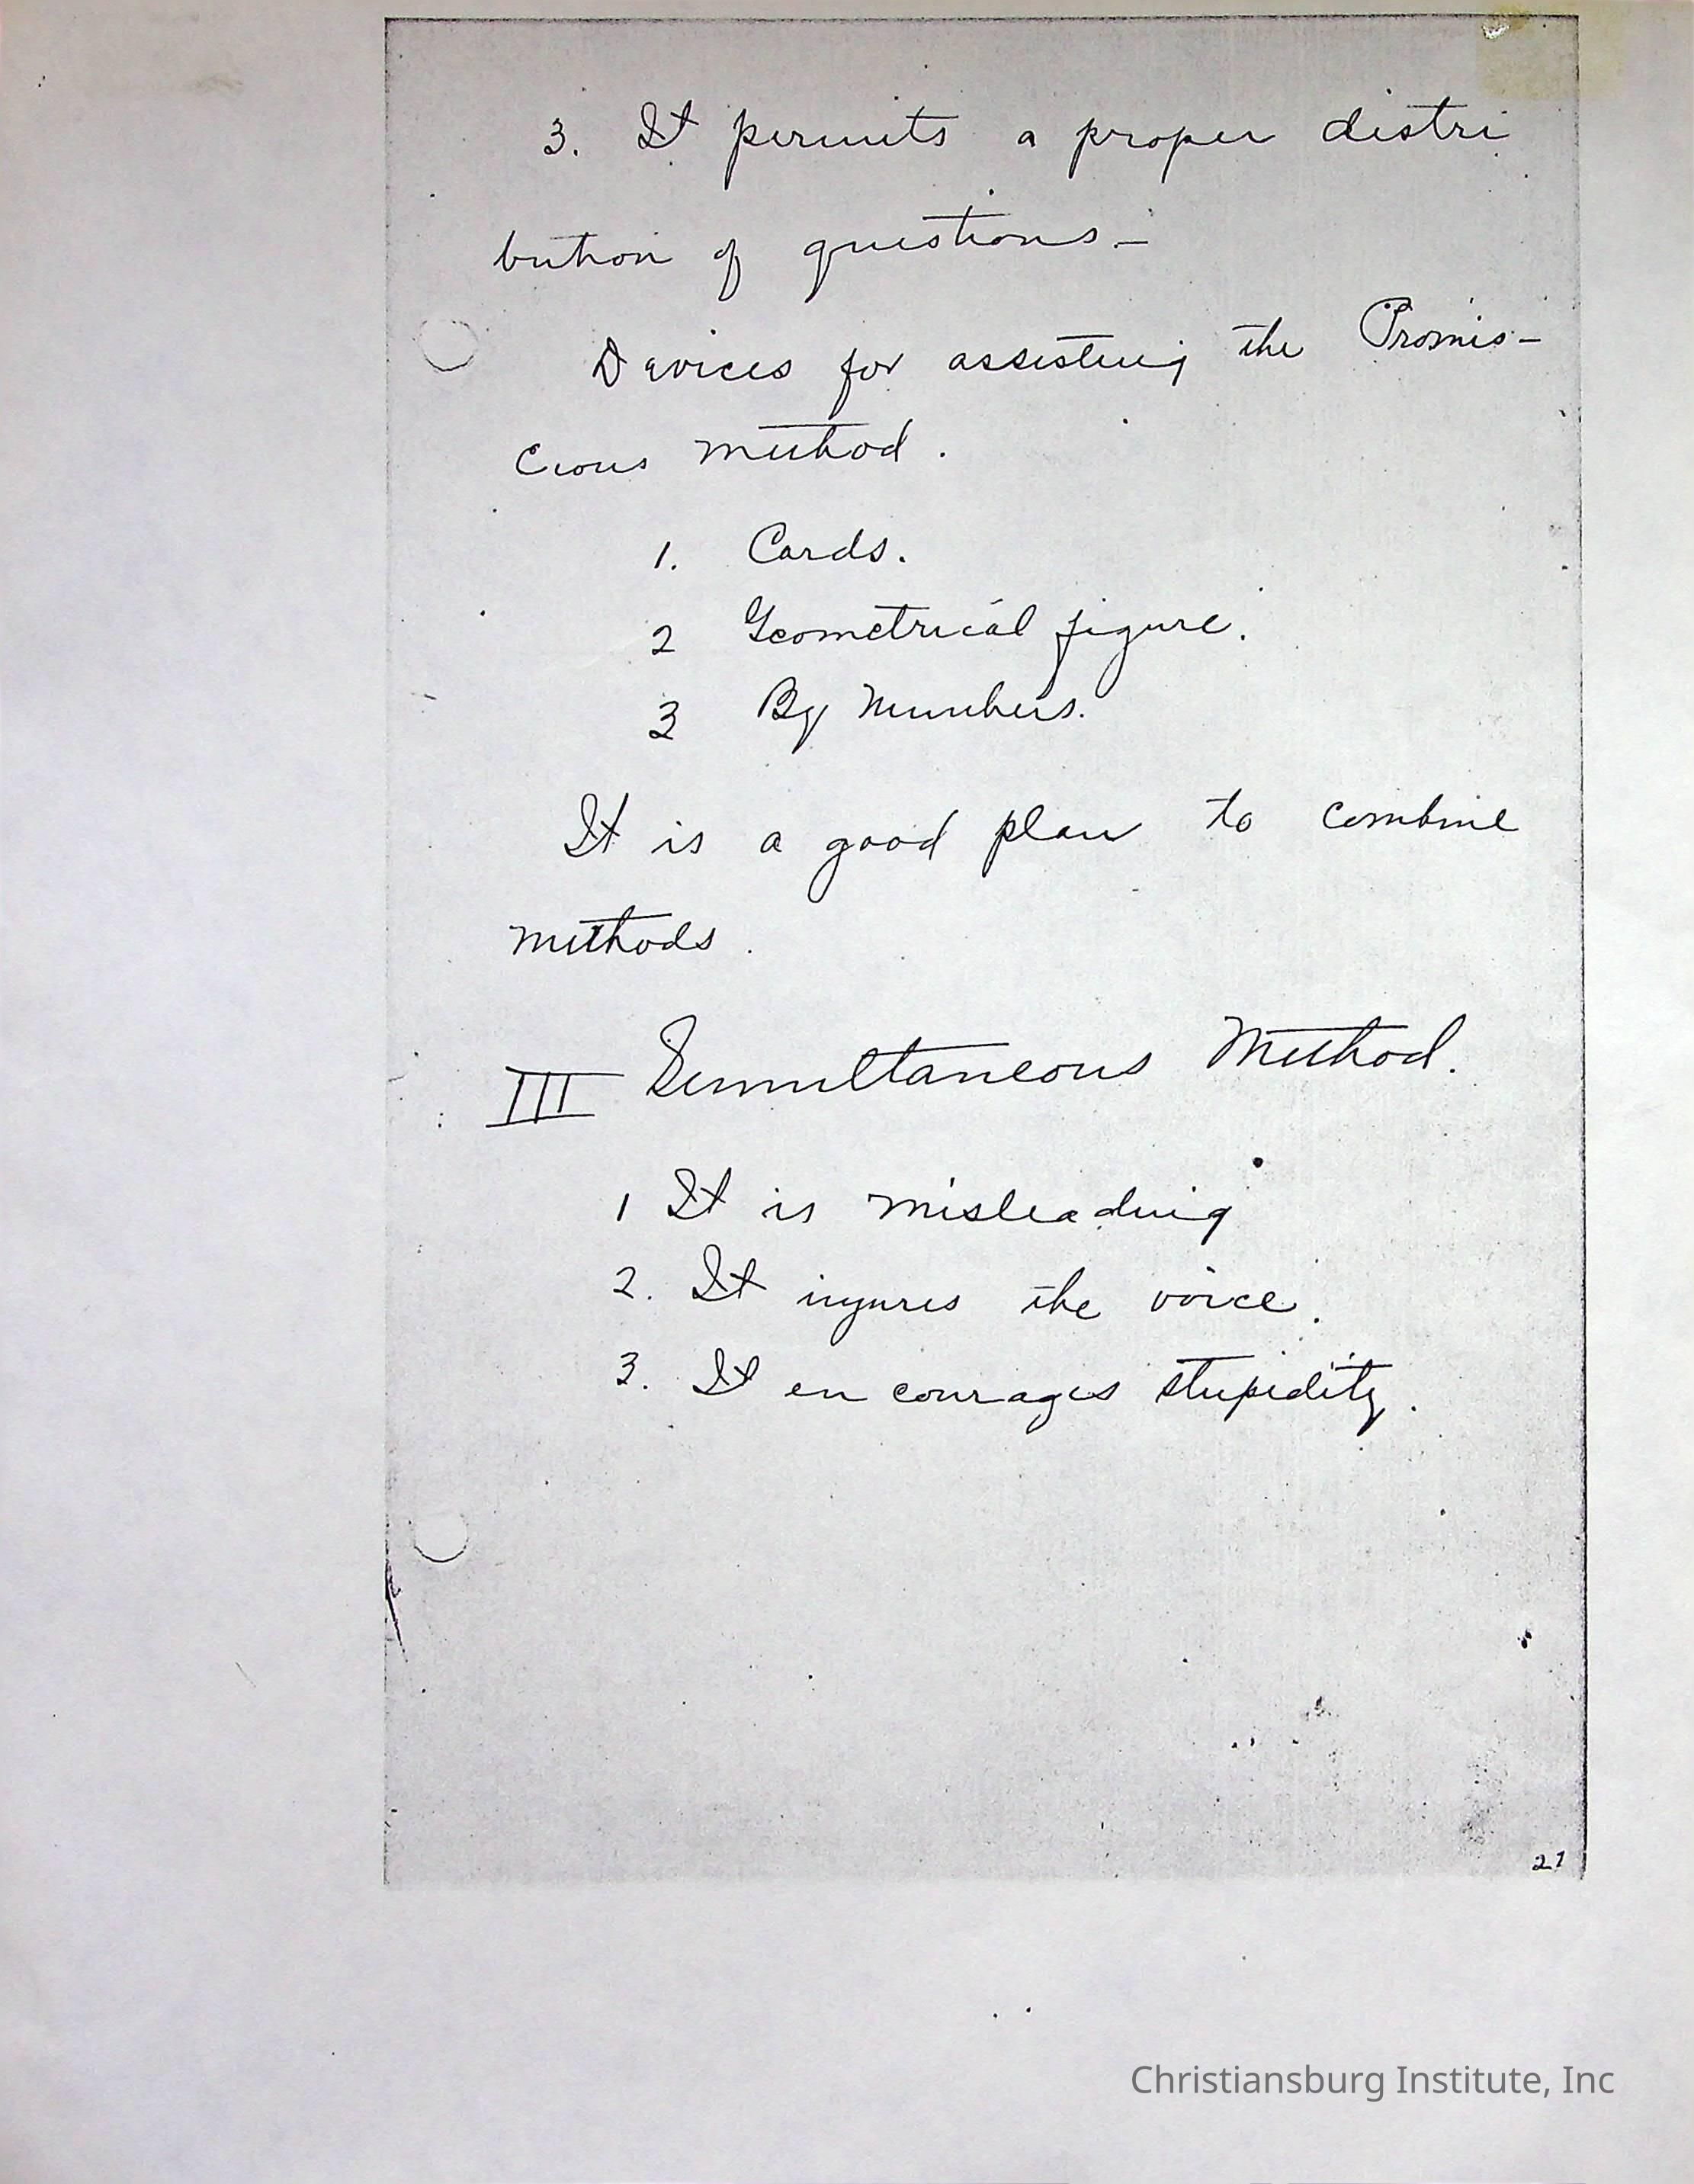 3. It permits a proper distri
bution of questions -
Devices for assisting the Promis-
cious method.
1. Cards.
2 Geometrical figure.
3 By Numbers.
It is a good plan to combine
methods.
III Simultaneous Method.
1 It is misleading
2. It injures the voice.
3. It en courages stupidity.
21
Christiansburg Institute, Inc